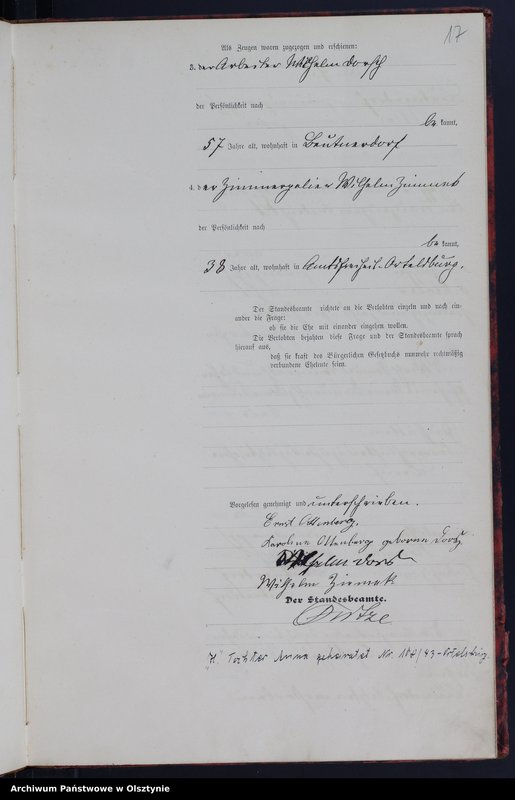 17
Als Zeugen waren zugezogen und erschienen:
3. der Arbeiter Wilhelm Dorsch
der Persönlichkeit nach
be kannt,
57 Jahre alt, wohnhaft in Beutnerdorf
4. der Zimmerpolier Wilhelm
der Persönlichkeit nach
be kannt,
38 Jahre alt, wohnhaft in Amtsfreiheit-Ortelsburg.
Der Standesbeamte richtete an die Verlobten einzeln und nach ein-
ander die Frage:
ob sie die Ehe mit einander eingehen wollen.
Die Verlobten bejahten diese Frage und der Standesbeamte sprach
hierauf aus,
daß sie kraft des Bürgerlichen Gesetzbuchs nunmehr rechtmäßig
verbundene Eheleute seien.
Vorgelesen, genehmigt und unterschrieben.
Ernst Ottenberg.
Karoline Ottenberg geborene
Wilhelm
Wilhelm
Der Standesbeamte.
"H." Tochter Anna geheiratet Nr. /43-Ortelsburg
Archiwum Państwowe w Olsztynie